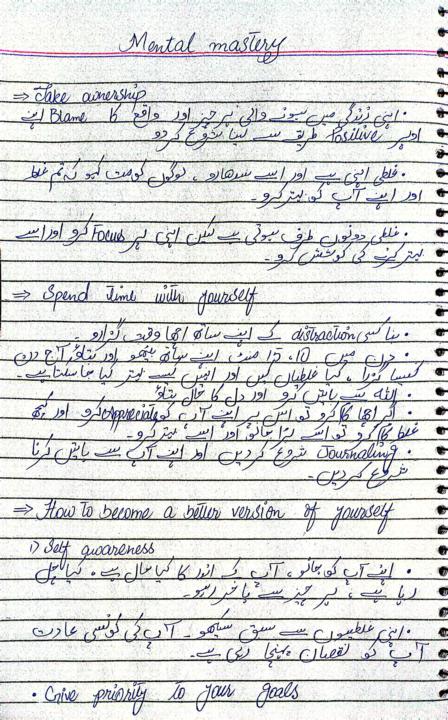 Mental mastery
⇒ Take ownership
• اپنی زندگی میں ہونے والی ہر چیز اور واقع کا Blame اپنے
اوپر Positive طریقے سے لینا شروع کر دو
• غلطی اپنی ہے اور اسے سدھارو، لوگوں کو مت کہو کہ تم غلط
اور اپنے آپ کو بہتر کرو۔
• غلطی دونوں طرف ہوتی ہے لیکن اپنی پر Focus کرو اور اسے
بہتر کرنے کی کوشش کرو۔
⇒ Spend time with yourself
• بنا کسی distraction کے اپنے ساتھ اچھا وقت گزارو۔
• دن میں 10، 15 منٹ اپنے ساتھ بیٹھو اور بتاؤ آج دن
کیسا گزرا، کیا غلطیاں کیں اور انہیں کیسے بہتر کیا جا سکتا ہے۔
• اللہ سے باتیں کرو اور دل کا حال بتاؤ
• گر اچھا کام کرو تو اس پر اپنے آپ کو Appreciate کرو اور کچھ
غلط کام کرو تو اسے برا جانو اور اسے بہتر کرو۔
• Journaling شروع کر دیں اور اپنے آپ سے باتیں کرنا
شروع کر دیں۔
⇒ How to become a better version of yourself
i) Self awareness
• اپنے آپ کو جانو، آپ کے اندر کا کیا حال ہے، کیا چل
رہا ہے، ہر چیز سے باخبر رہو۔
• اپنی غلطیوں سے سبق سیکھو۔ آپ کی کونسی عادت
آپ کو نقصان پہنچا رہی ہے۔
• Give priority to your goals